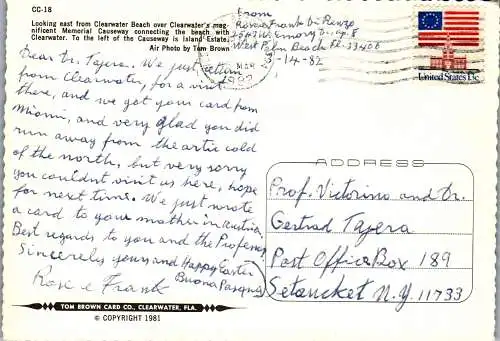 CC-18
Looking east from Clearwater Beach over Clearwater's mag-
nificent Memorial Causeway connecting the beach with
Clearwater. To the left of the Causeway is Island Estate.
Air Photo by Tom Brown
From
Rose Frank Di Renzo
2547 W. Emory Dr. apt 8
West Palm Beach Fl. 33406
3-14-82
MAR
1982
United States
Dear Dr. Tajera. We just return
from Clearwater, for a visit
there, and we got your card from
Miami, and very glad you did
run away from the artic cold
of the north, but very sorry
you couldnt visit us here, hope
for next time. We just wrote
a card to your mother in Austria.
Best regards to you and the Professor
Sincerely yours and Happy Easter
Buona Pasqua
Rose e Frank
ADDRESS
Prof. Victorino and Dr.
Gertrud Tajera
Post Office Box 189
Setaucket N.Y. 11733
TOM BROWN CARD CO., CLEARWATER, FLA.
© COPYRIGHT 1981